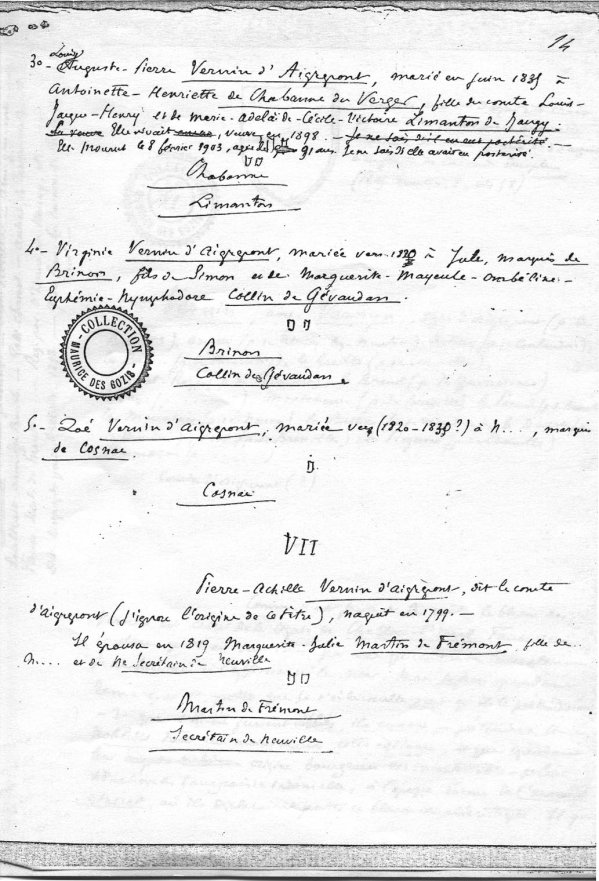 14
Louis
3o- Auguste-Pierre Vernin d'Aigrepont, marié en juin 1835 à
Antoinette-Henriette de Chabanne du Verger, fille du comte Louis-
Jaque-Henry et de marie-adelaïde-Cécile-Victoire Limanton de Jaugy.
La veuve Elle vivait encore, veuve, en 1898. - Je ne sais s'il en eut postérité. -
Elle mourut le 8 février 1903, agée de 91 ans. Je ne sais si elle avait eu postérité.
Chabanne
Limanton
4o- Virginie Vernin d'Aigrepont, mariée vers 1820 à Jule, marquis de
Brinon, fils de Simon et de Marguerite-Mayeule-Ombéline-
Euphémie-Nymphodore Collin de Gévaudan.
COLLECTION
MAURICE DES GOZIS
Brinon
Collin de Gévaudan.
5o- Zoé Vernin d'Aigrepont, mariée vers (1820-1835?) à N..., marquis
de Cosnac.
Cosnac
VII
Pierre-Achille Vernin d'Aigrepont, dit le comte
d'aigrepont (j'ignore l'origine de ce titre), naquit en 1799.-
Il épousa en 1819 Marguerite-Julie Martin de Frémont, fille de
N.... et de Ne Secrétain de Neuville
Martin de Frémont
Secrétain de Neuville